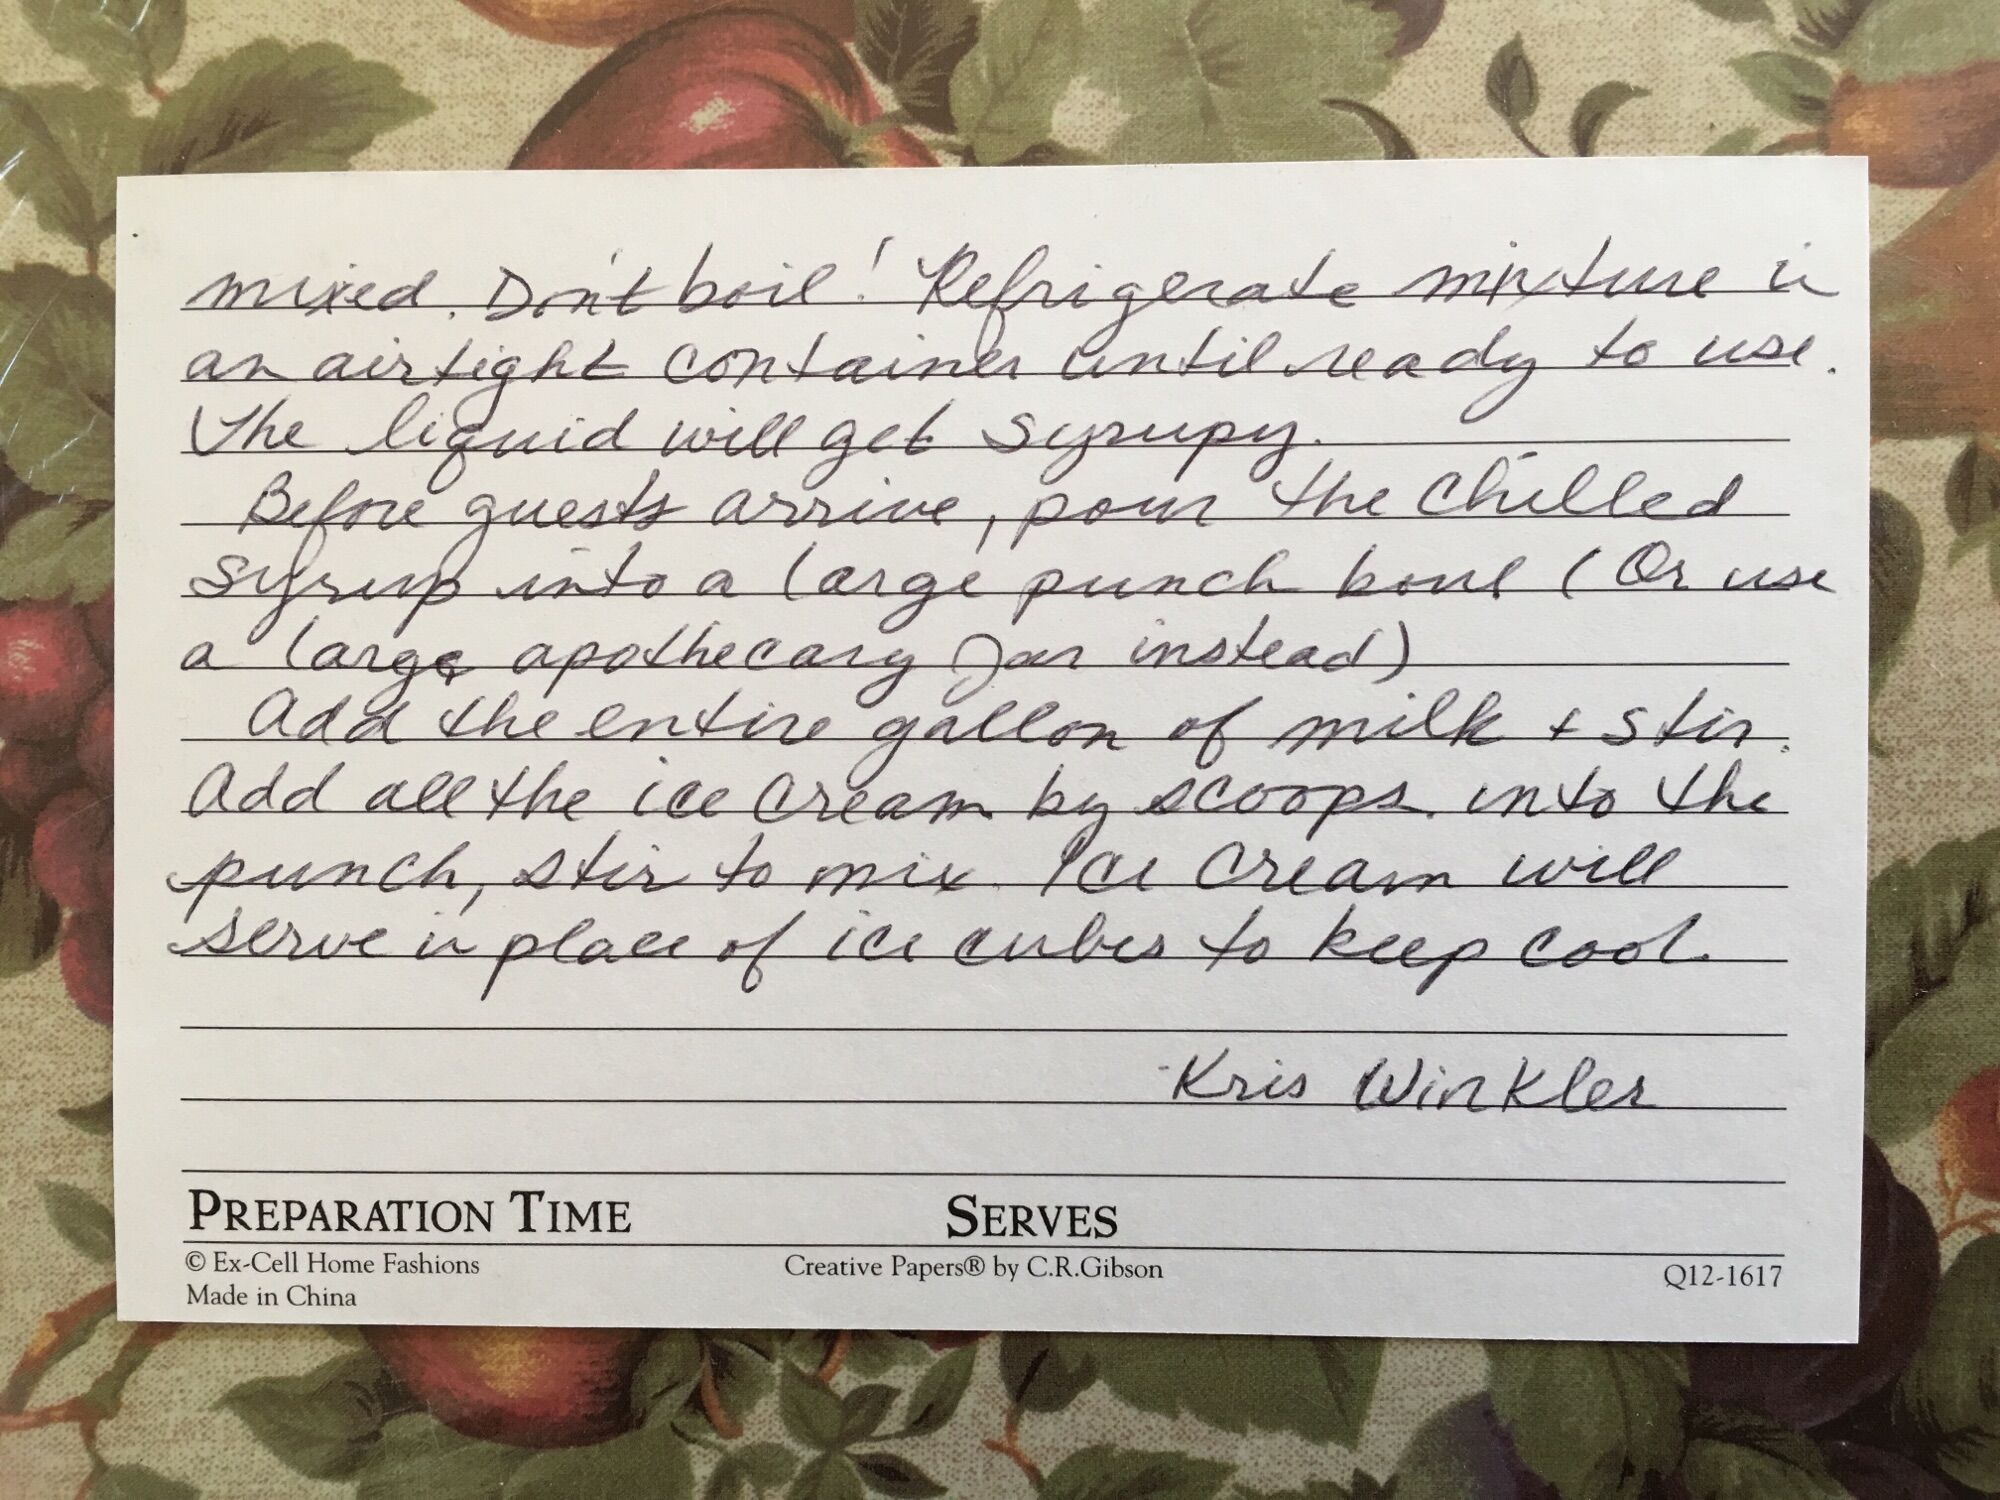 mixed. Don't boil! Refrigerate mixture in
an airtight container until ready to use.
The liquid will get syrupy.
Before guests arrive, pour the chilled
syrup into a large punch bowl (Or use
a large apothecary Jar instead)
Add the entire gallon of milk + stir.
Add all the ice cream by scoops into the
punch, stir to mix. Ice cream will
serve in place of ice cubes to keep cool.
Kris Winkler
PREPARATION TIME SERVES
© Ex-Cell Home Fashions Creative Papers® by C.R.Gibson Q12-1617
Made in China